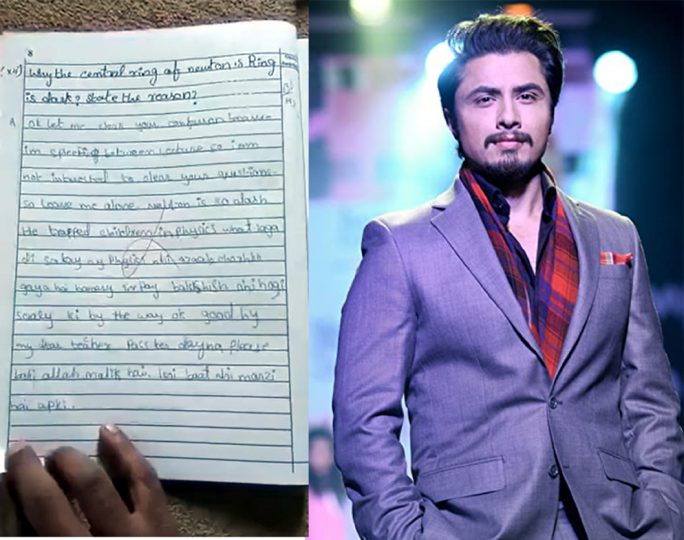 8
Why the central ring of newton's Ring
is dark? State the reason?
A ok let me clear your confusion because
im speeking between lecture so imm
not intrusted to clear your qustions.
so leave me alone is so
He trapped children in physics what laga
di sabay ay physics nhi azaab charhkh
gaya hai hamary sir pay bakhshish nhi hogi
ki by the way ok good by
my dear teaher Pass ker dayna please
baki allah malik hai. koi baat nhi marzi
hai apki.